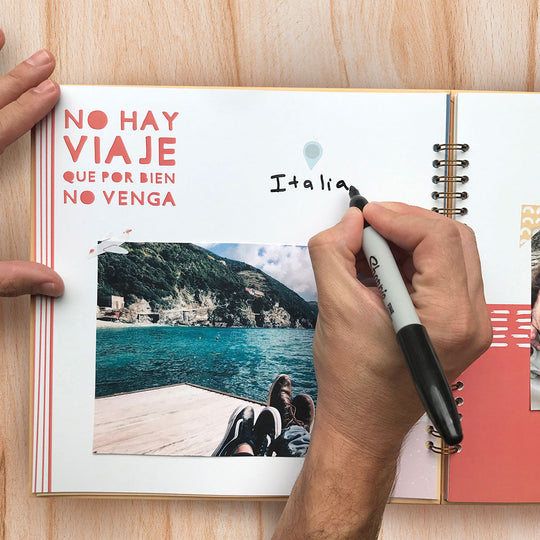 NO HAY
VIAJE
QUE POR BIEN
NO VENGA
Italia
Sharpie